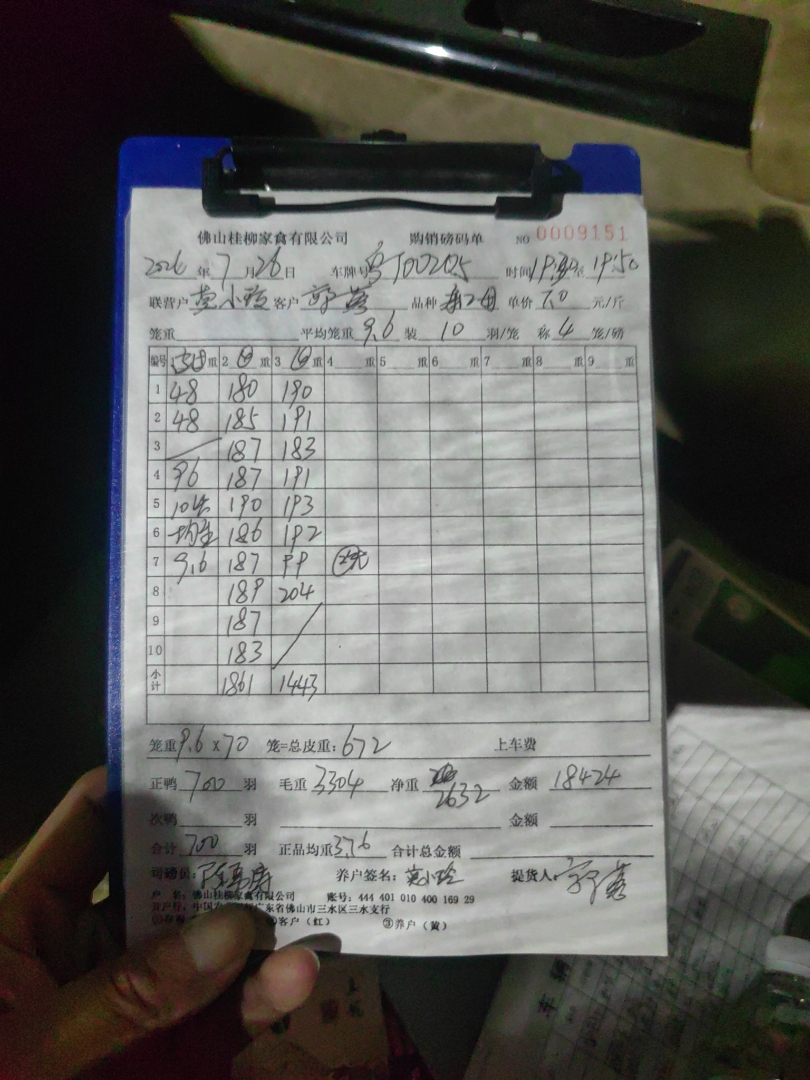 佛山桂柳家禽有限公司 购销磅码单 NO 0009151
2026 年 7 月 26 日 车牌号 粤J00205 时间 至 19:50
联营户 莫小玲 客户 品种 单价 7.0 元/斤
笼重 平均笼重 9.6 装 10 羽/笼 称 4 笼/磅
编号 重 2 重 3 重 4 重 5 重 6 重 7 重 8 重 9 重
1 48 180 190
2 48 185 191
3 187 183
4 96 187 191
5 10笼 190 193
6 均重 186 192
7 9.6 187 99
8 189 204
9 187
10 183
小计 1861 1443
笼重 9.6 x 70 笼=总皮重: 672 上车费
正鸭 700 羽 毛重 3304 净重 2632 金额 18424
次鸭 羽 金额
合计 700 羽 正品均重 3.76 合计总金额
司磅员: 养户签名: 莫小玲 提货人:
户 名: 佛山桂柳家禽有限公司 账号: 444 401 010 400 169 29
广东省佛山市三水区三水支行
客户(红) ③养户(黄)